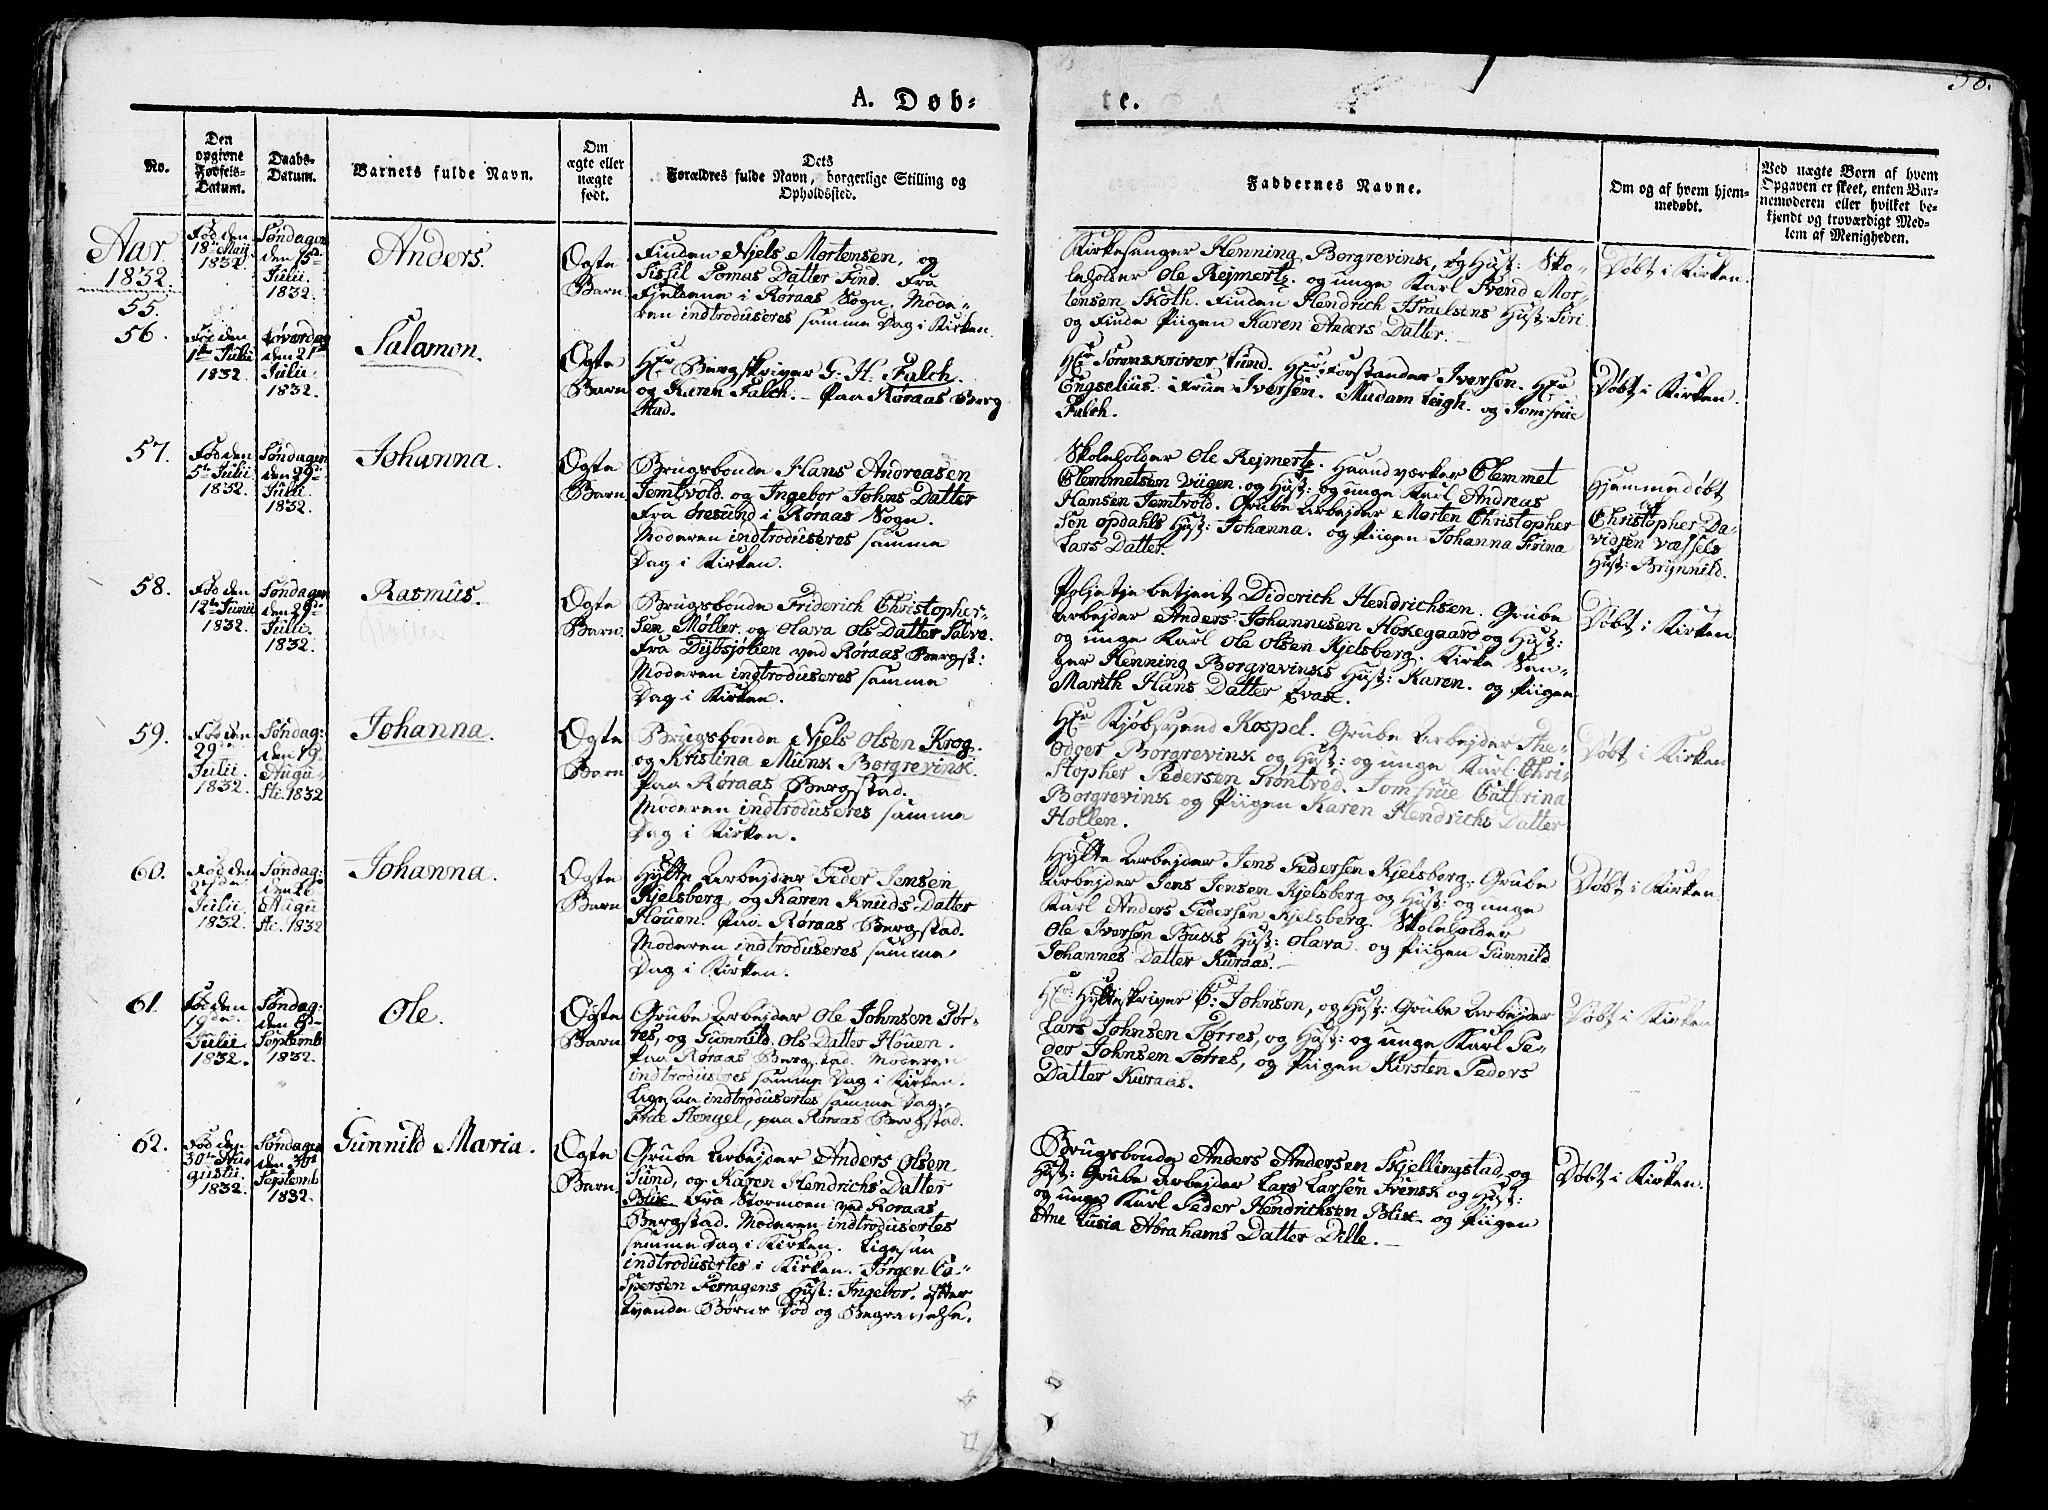 A. Døb-
te.
58.
No.
Den
opgivne
Fødsels-
Datum.
Daabs-
Datum.
Barnets fulde Navn.
Om
ægte eller
uægte
født.
Dets
Forældres fulde Navn, borgerlige Stilling og
Opholdssted.
Faddernes Navne.
Om og af hvem hjem-
medøbt.
Ved uægte Børn af hvem
Opgaven er skeet, enten Bar-
nemoderen eller hvilket be-
kjendt og troværdigt Med-
lem af Menigheden.
Aar
1832.
55.
Fød den
18de Maij
1832.
Søndagen
den 15de
Julii
1832.
Anders.
Ægte
Barn
Finden Njels Mortensen, og
Sissil Tomas Datter Find. Fra
Fjeldene i Røraas Sogn. Mode-
ren indtroduseres samme Dag i Kirken.
Kirkesanger Henning Borgrevink, og Hust: Sko-
leholder Ole Rejmertz. og unge Karl Svend Mor-
tensen Skoth. Finden Hendrich Israelsens Hust: Siri
og Finde Piigen Karen Anders Datter.
Døbt i Kirken.
56.
Fød den
1ste Julii
1832.
Løverdag
den 21de
Julii
1832.
Salamon.
Ægte
Barn
Hr. Bergskriver G. H. Falch.
og Karen Falch. Paa Røraas Berg
stad.
Hr. Sorenskriver Lund. Hr. Forstander Iversen. Hr
Engselius. Frue Iversen. Madam Leigh. og Jomfrue
Falch.
Døbt i Kirken.
57.
Fød den
5te Julii
1832.
Søndagen
den 29de
Julii.
1832.
Johanna.
Ægte
Barn
Brugsbonde Hans Andreasen
Jemtvold. og Ingebor Johns Datter
Fra Øresund i Røraas Sogn.
Moderen indtroduseres samme
Dag i Kirken.
Skoleholder Ole Rejmertz. Haandværker Clemmet
Clemmetsen Viigen. og Hust: og unge Karl Andreas
Hansen Jemtvold. Grube Arbejder Morten Christopher
sen opdahls Hust: Johanna. og Piigen Johanna
Lars Datter.
Hjemmedøbt
aff
Christopher Da-
vidsen Væssels
Hust: Brynnild.
58.
Fød den
12te Junii
1832.
Søndagen
den 29de
Julii.
1832.
Rasmus.
Ægte
Barn.
Brugsbonde Friderich Christopher-
sen Møller. og Olava Ols Datter
Fra Dybsjølien ved Røraas Bergst:
Moderen indtroduseres samme
Dag i Kirken.
Poljetje betjent Diderich Hendrichsen. Grube
Arbejder Anders Johannesen Hokegaard og Hust:
og unge Karl Ole Olsen Kjelsberg. Kirke San-
ger Henning Borgrevinks Hust: Karen. og Piigen
Marith Hans Datter Evas.
Døbt i Kirken
59.
Fød den
29de
Julii
1832.
Søndag:
den 19de
Augu-
sti. 1832
Johanna.
Ægte
Barn
Brugsbonde Njels Olsen Krog.
og Kristina Munk Borgrevink.
Paa Røraas Bergstad.
Moderen indtroduseres samme
Dag i Kirken.
Hr Kjøbsvend Kospel. Grube Arbejder The-
odger Borgrevink og Hust: og unge Karl Chri-
stopher Pedersen Grøntrød. Jomfrue Cathrina
Borgrevink og Piigen Karen Hendrichs Datter
Hollen.
Døbt i Kirken
60.
Fød den
27de
Julii
1832.
Søndag:
den 26de
Augu
sti. 1832
Johanna.
Ægte
Barn
Hytte Arbejder Peder Jensen
Kjelsberg, og Karen Knuds Datter
Houen. Paa Røraas Bergstad.
Moderen indtroduseres samme
Dag i Kirken.
Hytte Arbejder Jens Pedersen Kjelsberg. Grube
Arbejder Jens Jensen Kjelsberg og Hust: og unge
Karl Anders Pedersen Kjelsberg. Skoleholder
Ole Iversen Busks Hust: Olava. og Piigen Gunnild
Johannes Datter Kuraas.
Døbt i Kirken
61.
Fød den
19de
Julii
1832.
Søndag:
den 9de
Septemb
1832.
Ole.
Ægte
Barn
Grube Arbejder Ole Johnsen Tør-
res, og Gunnild. Ols Datter Houen.
Paa Røraas Bergstad. Moderen
indtroduseres samme Dag i Kirken.
Ligesaa indtrodusertes samme Dag.
Stengel, paa Røraas Bergstad.
Hr. Hytteskriver C: Johnsen, og Hust: Grube Arbejder
Lars Johnsen Tørres, og Hust: og unge Karl Pe-
der Johnsen Tørres, og Piigen Kirsten Peders
Datter Kuraas.
Døbt i Kirken
62.
Fød den
30te Au-
gustii
1832.
Søndagen
den 30te
Septemb
1832.
Gunnild Maria.
Ægte
Barn.
Grube Arbejder Anders Olsen
Sund, og Karen Hendrichs Datter
Blix. Fra Stormoen ved Røraas
Bergstad. Moderen indtrodusertes
samme Dag i Kirken. Ligesaa
indtrodusertes i Kirken. Jørgen Ca-
spersen Ferragens Hust: Ingebor. efter
tvende Børns Død og Begravelse.
Brugsbonde Anders Andersen Skjellingstad, og
Hust: Grube Arbejder Lars Larsen Svensk og Hust:
og unge Karl Peder Hendrichsen Blix og Piigen
Ane Lusia Abrahams Datter Dille.
Døbt i Kirken.